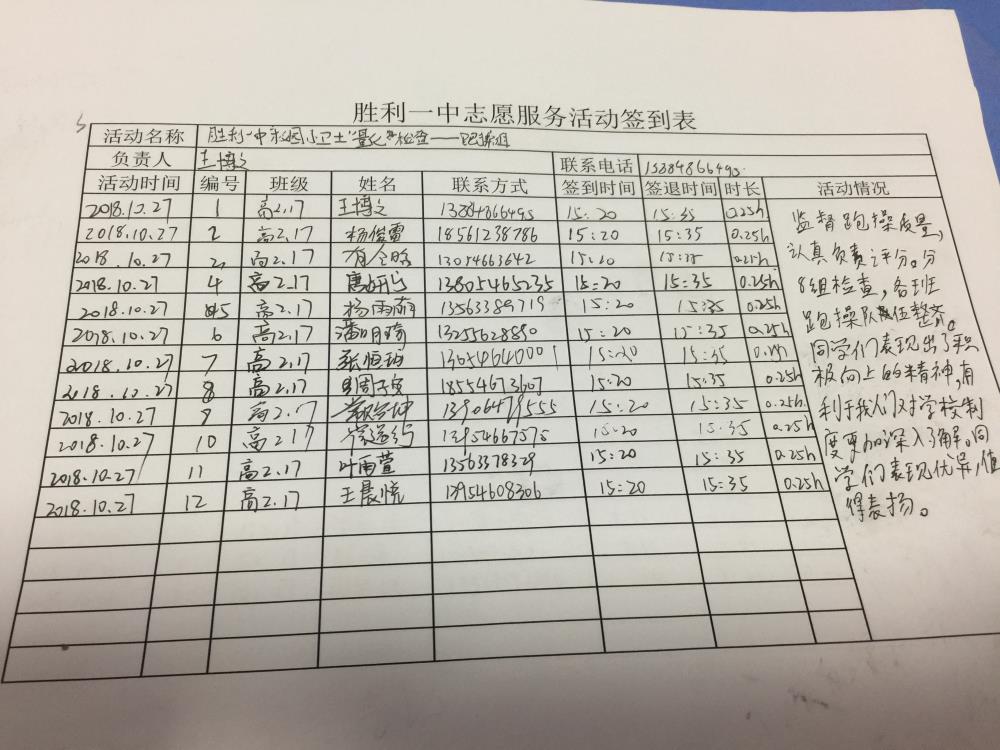 胜利一中志愿服务活动签到表
活动名称 胜利一中校园小卫士"量化"检查——跑操组
负责人 王博文 联系电话
活动时间 编号 班级 姓名 联系方式 签到时间 签退时间 时长 活动情况
2018.10.27 1 高2.17 王博文 15:20 15:35 0.25h
2018.10.27 2 高2.17 杨俊雷 18561238786 15:20 15:35 0.25h
2018.10.27 3 高2.17 13054663642 15:20 15:35 0.25h
2018.10.27 4 高2.17 13805465235 15:20 15:35 0.25h
2018.10.27 5 高2.17 杨雨萌 13563389719 15:20 15:35 0.25h
2018.10.27 6 高2.17 潘明琦 13255628880 15:20 15:35 0.25h
2018.10.27 7 高2.17 15:20 15:35
2018.10.27 8 高2.17 18554673607 15:20 15:35 0.25h
2018.10.27 9 高2.17 15:20 15:35 0.25h
2018.10.27 10 高2.17 13954667575 15:20 15:35 0.25h
2018.10.27 11 高2.17 叶雨萱 13563378329 15:20 15:35 0.25h
2018.10.27 12 高2.17 王晨悦 13954608306 15:20 15:35 0.25h
监督跑操质量,
认真负责评分。分
8组检查,各班
跑操队伍整齐。
同学们表现出了积
极向上的精神,有
利于我们对学校制
度更加深入了解。同
学们表现优异,值
得表扬。